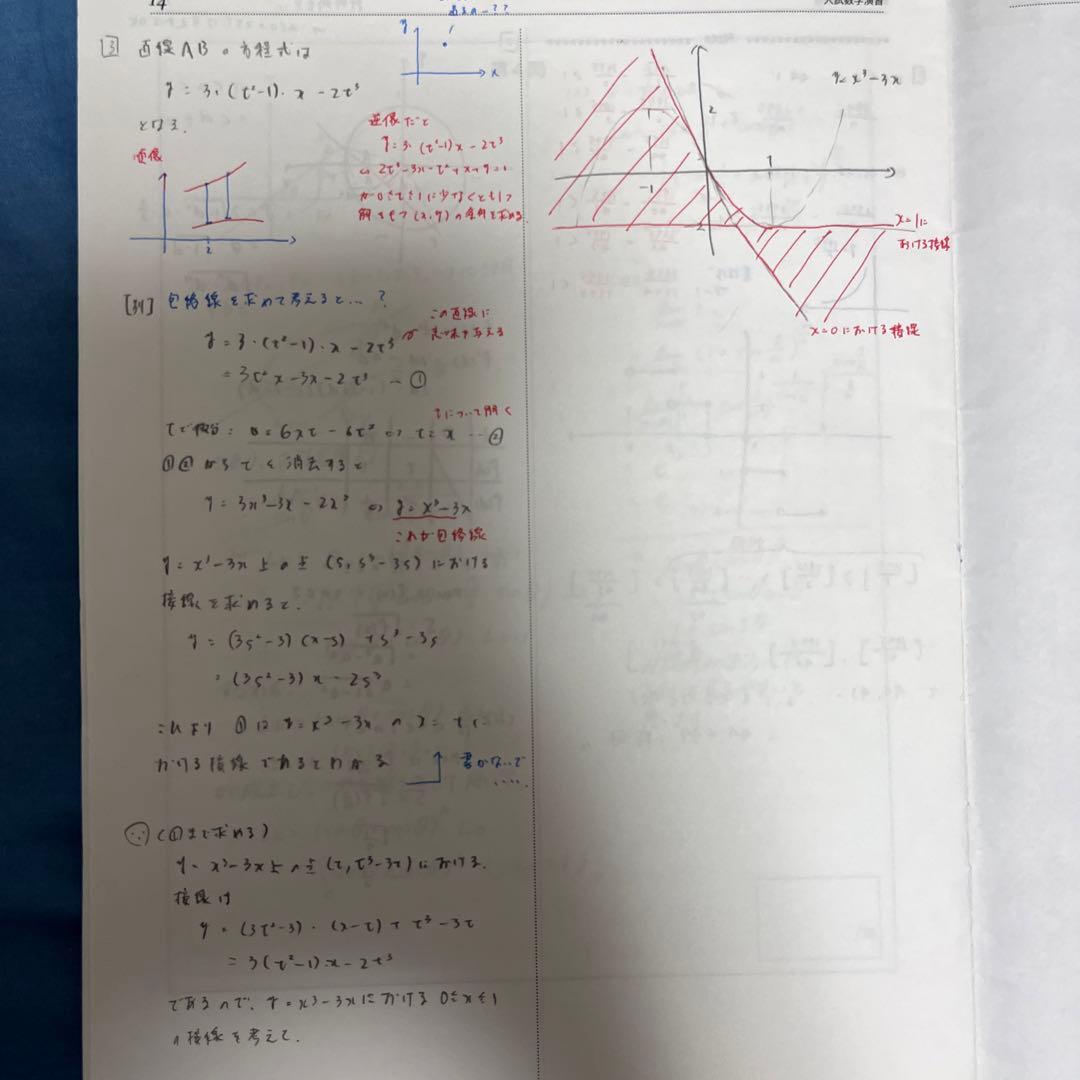 14
入試数学演習
y
x
3 直線ABの方程式は
y = 3・(t²-1)・x - 2t³
となる.
逆像だと
y = 3・(t²-1)x - 2t³
が0≦t≦1に少なくとも1つ
解をもつ(x, y)の条件を求める
2
[別] 包絡線を求めて考えると…?
この直線に
y = 3・(t²-1)・x - 2t³
= 3t²x - 3x - 2t³ … ①
tについて開く
tで微分: 0 = 6xt - 6t² ⇔ t = x … ②
①②からtを消去すると
y = 3x³ - 3x - 2x³ ⇔ y = x³ - 3x
これが包絡線
y = x³ - 3x 上の点 (s, s³ - 3s) における
接線を求めると.
y = (3s² - 3)(x - s) + s³ - 3s
= (3s² - 3)x - 2s³
これより ①は y = x³ - 3x の x = t に
おける接線であるとわかる
書かないで
....
∵ (①まで求める)
y = x³ - 3x上の点(t, t³ - 3t)における.
接線は
y = (3t² - 3)・(x - t) + t³ - 3t
= 3(t² - 1)・x - 2t³
であるので. y = x³ - 3xにおける 0≦x≦1
の接線を考えて.
y = x³ - 3x
2
-1
1
x=1に
おける接線
x=0における接線